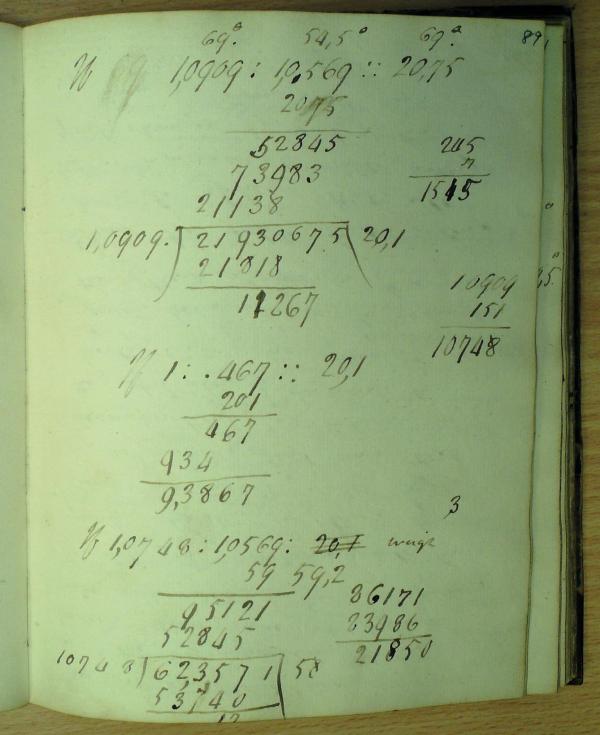 69.° 54,5° 69.° 89,
If 1,0909 : 1,0,569 :: 20,75
2075
52845 2215
73983 7
21138 1545
1,0909. ) 21930675 ( 20,1
21818
11267 10909
151
10748
If 1 : .467 :: 20,1
201
467
934
9,3867
3
If 1,0748 : 1,0569 : 20,1 weigt
59 59,2
95121 86171
52845 23986
10748 ) 623571 ( 58 21850
53740